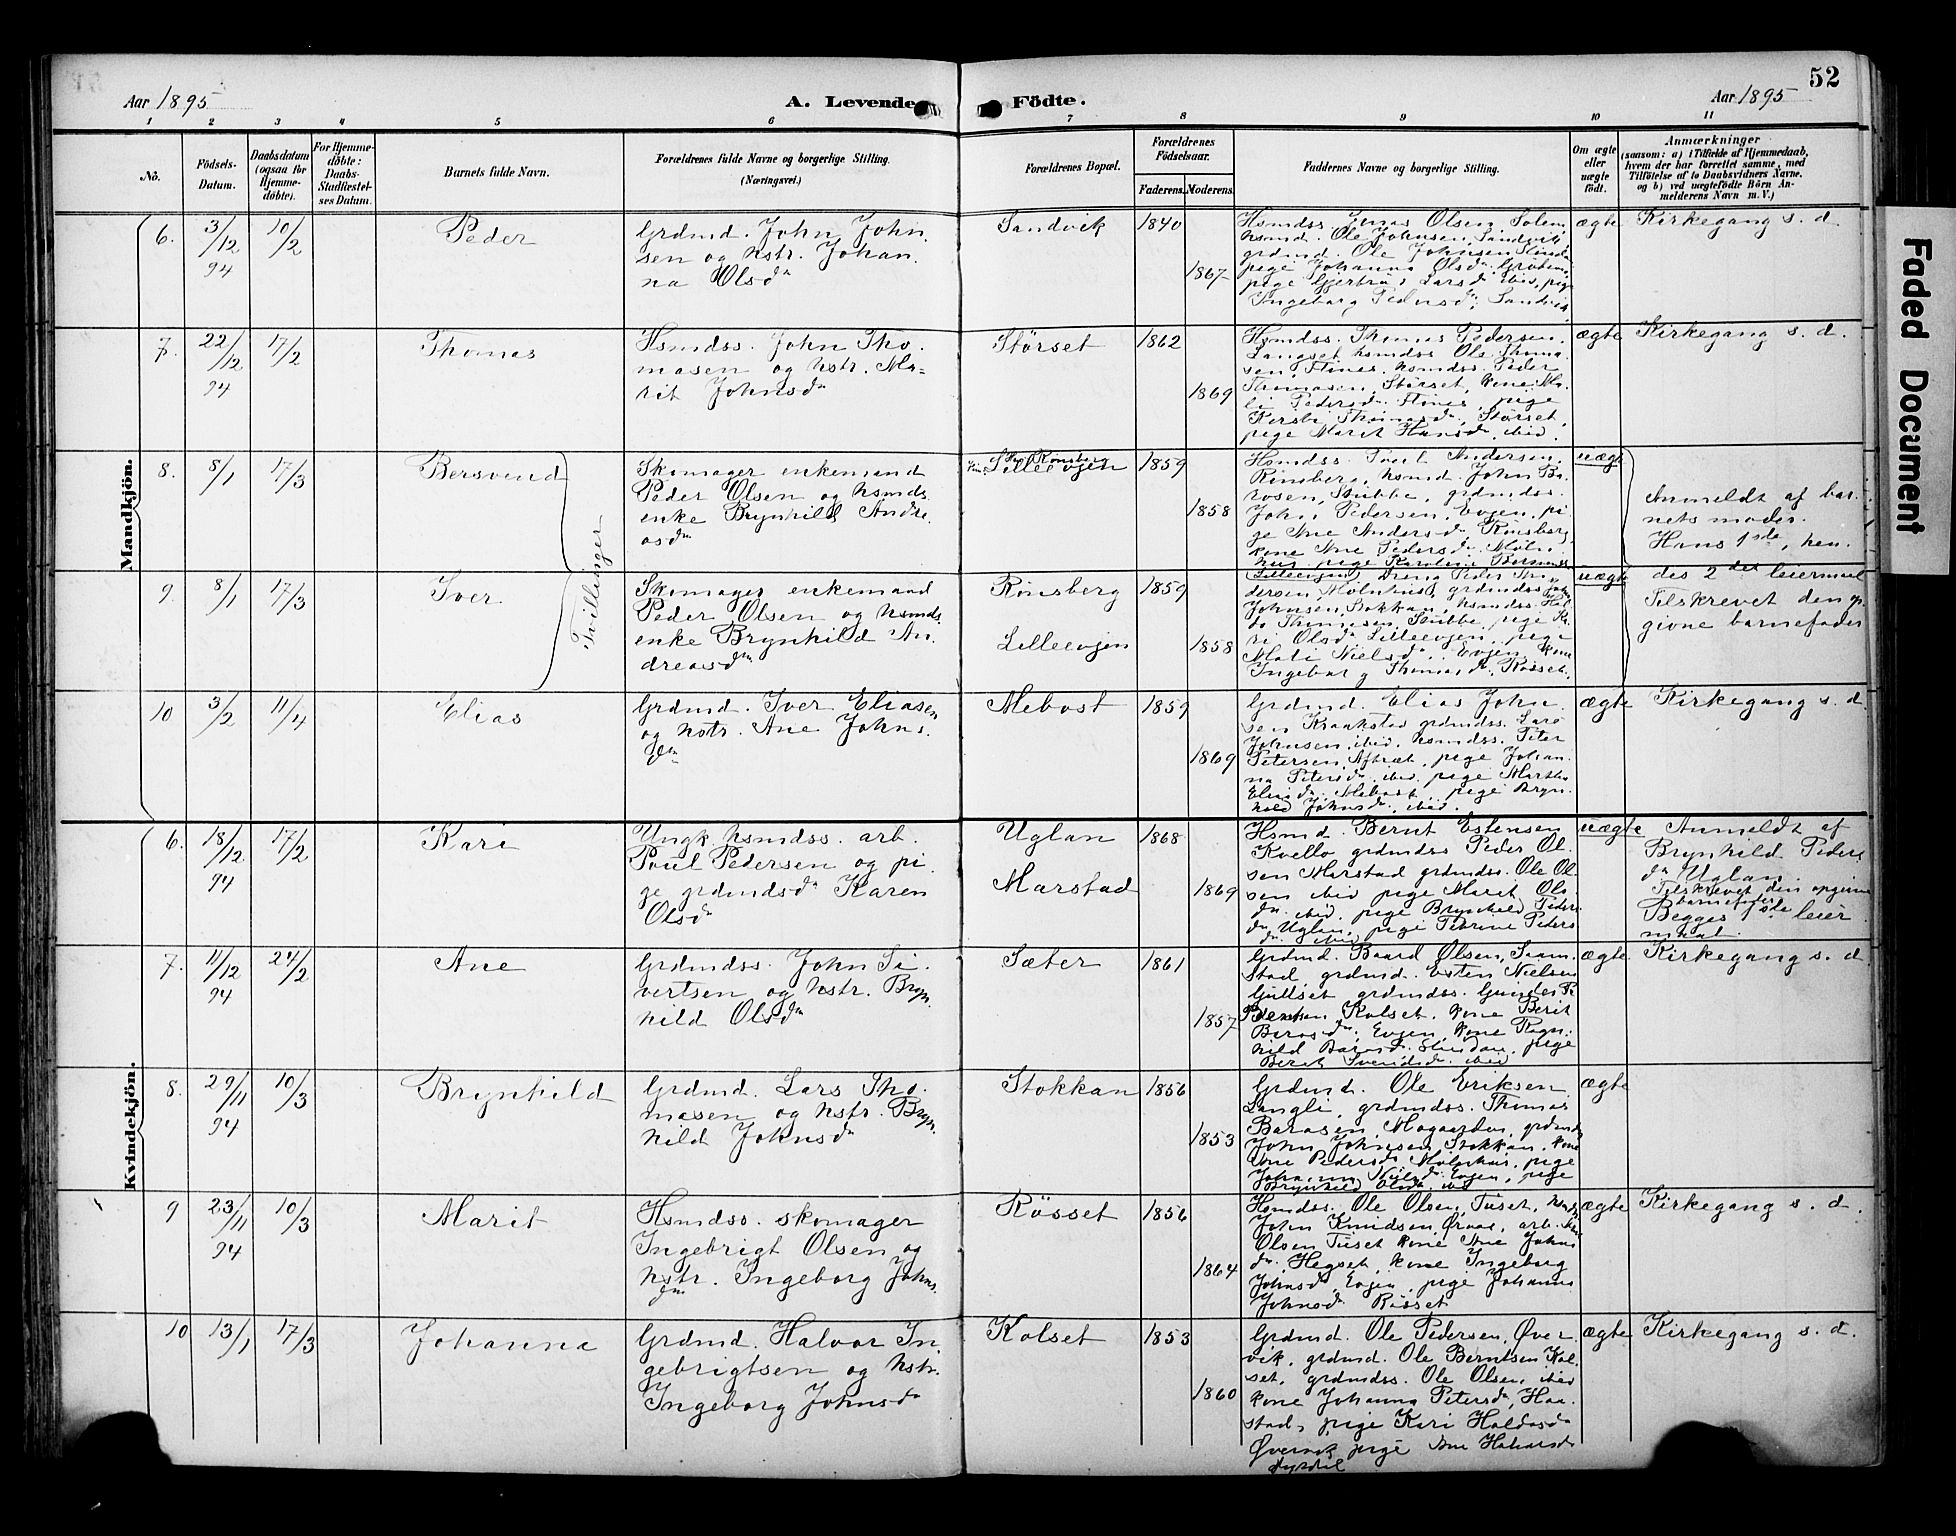 Aar 1895
A. Levende
Födte.
Aar 1895
52
1 2 3 4 5 6 7 8 9 10 11
Nô.
Födsels-
Datum.
Daabsdatum
(ogsaa for
Hjemme-
döbte).
For Hjemme-
döbte:
Daabs-
Stadfæstel-
ses Datum.
Barnets fulde Navn.
Forældrenes fulde Navne og borgerlige Stilling.
(Næringsvei.)
Forældrenes Bopæl.
Forældrenes
Födselsaar.
Faderens.
Moderens.
Faddernes Navne og borgerlige Stilling.
Om ægte
eller
uægte
födt.
Anmærkninger
(saasom: a) i Tilfælde af Hjemmedaab,
hvem der har forrettet samme, med
Tilföielse af to Daabsvidners Navne.
og b) ved uægtefödte Börn An-
melderens Navn m. V.)
Mandkjön.
6.
3/12
94
10/2
Peder
Grdmd. John John.
sen og hstr. Johan.
na Olsdn
Sandvik
1840
1867
Hsmdss. Olsen, Solem,
hsmd. Ole Johnsen, Sandvik,
grdmd. Ole Johnsen
pige Johanna Olsdn
pige Larsdn ibid, pige
Ingeborg Pedersdn, Sandvik
ægte
Kirkegang s. d.
7.
22/12
94
17/2
Thomas
Hsmdss. John Tho.
masen og hstr. Ma-
rit Johnsdn
Störset
1862
1869
Hsmdss. Thomas Pedersen,
Langset hsmdss Ole Thoma
sen, Flönes, hsmdss. Peder
Thomasen, Störset, kone Ma.
li Pedersdn Flönes, pige
Thomasdn, Störset,
pige Marit Hansdn, ibid.
ægte
Kirkegang s. d.
8.
8/1
17/3
Bersvend
Skomager enkemand
Peder Olsen og hsmds
enke Brynhild Andre.
asdn
Rönsberg
Lilleevjen
1859
1858
Hsmdss. Andersen,
Rönsberg, hsmd. John Ba.
rosen, Stubbe, grdmdss.
John Pedersen, Evjen, pi
ge Ane Andersdn Rönsberg,
kone Ane Pedersdn Möln
hus, pige Karoline
uægte
Anmeldt af bar.
nets moder.
Hans 1ste, hen.
Tvillinger
9.
8/1
17/3
Iver
Skomager enkemand
Peder Olsen og hsmds
enke Brynhild An
dreasdn
Rönsberg
Lilleevjen
1859
1858
Lilleevjen, Dreng Peder
dersen Mölnhus, grdmdss John
Johnsen, Stokkan, hsmdss. Hal
do Thomasen, Stubbe, pige Ka
ri Olsdn Lilleevjen, pige
Mali Nielsdn, Evjen, kone
Ingeborg Thomasdn, Rösset.
uægte
des 2det leiermaal
Tilskrevet den op.
givne barnefader
10
3/2
11/4
Elias
Grdmd. Iver Eliasen
og hstr. Ane Johns.
dn
Mebost
1859
1869
Grdmd. Elias John
sen Kraakstad grdmdss. Lars
Johnsen, ibid, hsmdss. Peter
Petersen, Aftræt, pige Johan.
na Petersdn, ibid. pige Martha
Eliasdn, Mebost, pige Bryn.
hild Johnsdn, ibid.
ægte
Kirkegang s. d.
Kvindekjön.
6.
18/12
94
17/2
Kari
Ungk. hsmdss. arb.
Poul Pedersen og pi
ge grdmdsdn Karen
Olsdn
Uglan
Marstad
1868
1869
Hsmd. Bernt Estensen
Kvello grdmdss Peder Ol.
sen Marstad grdmdss. Ole Ol
sen ibid pige Marit Ols.
dn ibid, pige Brynhild Peders
dn Uglan, pige Petrine Peders
dn ibid
uægte
Anmeldt af
Brynhild Peders
dn Uglan.
Tilskrevet den opgivne
barnefader
Begges 1ste leier
maal.
7.
11/12
94
24/2
Ane
Grdmdss. John Si.
vertsen og hstr. Bryn.
hild Olsdn
Sæter
1861
1857
Grdmd. Baard Olsen, Saam.
stad grdmd. Esten Nielsen
Gullset grdmdss. Gunder Pe
Kolset, kone Berit
Barosdn, Evjen, kone Ragn.
hild Baardsdn, Slindan, pige
Berit Svendsdn ibid
ægte
Kirkegang s. d.
8.
29/11
94
10/3
Brynhild
Grdmd. Lars Tho.
masen og hstr. Bryn.
hild Johnsdn
Stokkan
1856
1853
Grdmd. Ole Eriksen
Langli, grdmdss. Thomas
Barosen, Mogaarden, grdmdss
John Johnsen Stokkan, kone
Ane Pedersdn Mölnhus, pige
Johanna Nielsdn, Evjen, pige
Brynhild Olsdn ibid
ægte
9
23/11
94
10/3
Marit
Hsmdss. skomager
Ingebrigt Olsen og
hstr. Ingeborg Johns.
dn
Rösset
1856
1864
Hsmdss. Ole Olsen, Tuset, hsmdss
John Knudsen, arb.
Olsen Tuset kone Ane Johns
dn, Hegset, kone Ingeborg
Johnsdn, Evjen, pige Johanna
Johnsdn Rösset
ægte
Kirkegang s. d.
10
13/1
17/3
Johanna
Grdmd. Halvor In
gebrigtsen og hstr.
Ingeborg Johnsdn
Kolset
1853
1860
Grdmd. Ole Pedersen, Över
vik, grdmd. Ole Berntsen Kol.
set, grdmdss. Ole Olsen, ibid
kone Johanna Petersdn, Haa.
stad, pige Kari Haldosdn
Övervik pige Ane Halvorsdn
ægte
Kirkegang s. d.
Faded Document